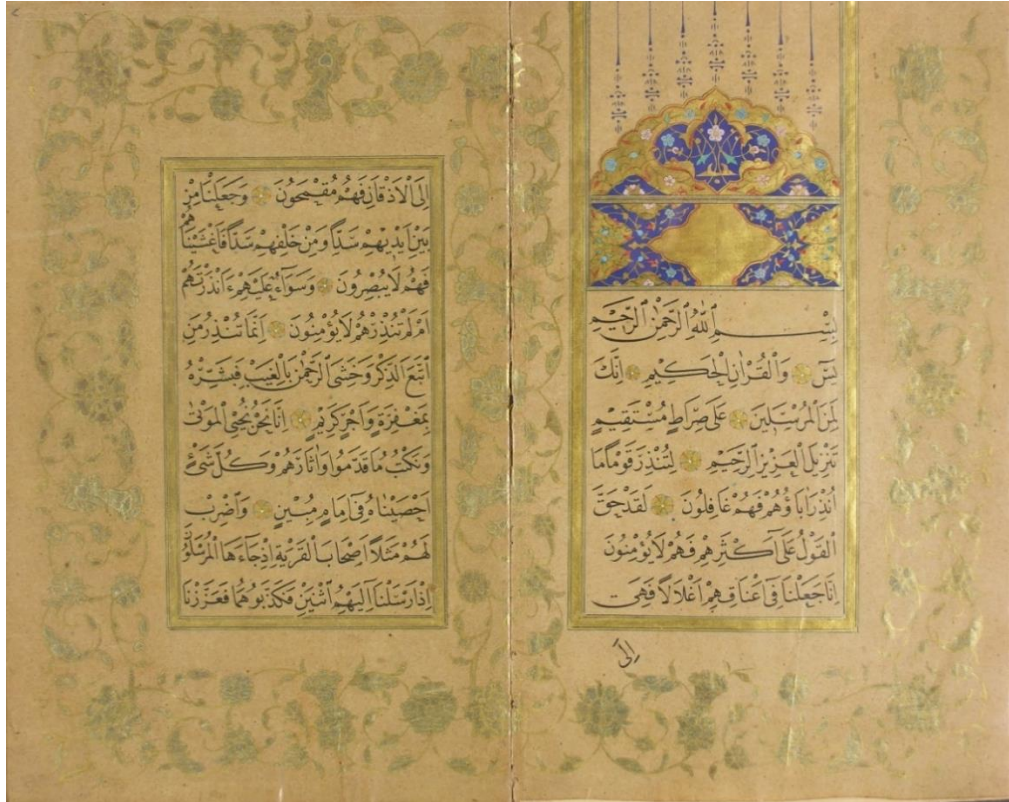 بِسْمِ اللّٰهِ الرَّحْمٰنِ الرَّحِيمِ
يٰسٓ وَالْقُرْاٰنِ الْحَكِيمِ اِنَّكَ
لَمِنَ الْمُرْسَلِينَ عَلٰى صِرَاطٍ مُسْتَقِيمٍ
تَنْزِيلَ الْعَزِيزِ الرَّحِيمِ لِتُنْذِرَ قَوْمًا مَا
اُنْذِرَ اٰبَاؤُهُمْ فَهُمْ غَافِلُونَ لَقَدْ حَقَّ
الْقَوْلُ عَلٰى اَكْثَرِهِمْ فَهُمْ لَا يُؤْمِنُونَ
اِنَّا جَعَلْنَا فِى اَعْنَاقِهِمْ اَغْلَالًا فَهِىَ
اِلَى
اِلَى الْاَذْقَانِ فَهُمْ مُقْمَحُونَ وَجَعَلْنَا مِنْ
بَيْنِ اَيْدِيهِمْ سَدًّا وَمِنْ خَلْفِهِمْ سَدًّا فَاَغْشَيْنَاهُمْ
فَهُمْ لَا يُبْصِرُونَ وَسَوَاءٌ عَلَيْهِمْ ءَاَنْذَرْتَهُمْ
اَمْ لَمْ تُنْذِرْهُمْ لَا يُؤْمِنُونَ اِنَّمَا تُنْذِرُ مَنِ
اتَّبَعَ الذِّكْرَ وَخَشِىَ الرَّحْمٰنَ بِالْغَيْبِ فَبَشِّرْهُ
بِمَغْفِرَةٍ وَاَجْرٍ كَرِيمٍ اِنَّا نَحْنُ نُحْيِى الْمَوْتٰى
وَنَكْتُبُ مَا قَدَّمُوا وَاٰثَارَهُمْ وَكُلَّ شَىْءٍ
اَحْصَيْنَاهُ فِى اِمَامٍ مُبِينٍ وَاضْرِبْ
لَهُمْ مَثَلًا اَصْحَابَ الْقَرْيَةِ اِذْ جَاءَهَا الْمُرْسَلُونَ
اِذْ اَرْسَلْنَا اِلَيْهِمُ اثْنَيْنِ فَكَذَّبُوهُمَا فَعَزَّزْنَا